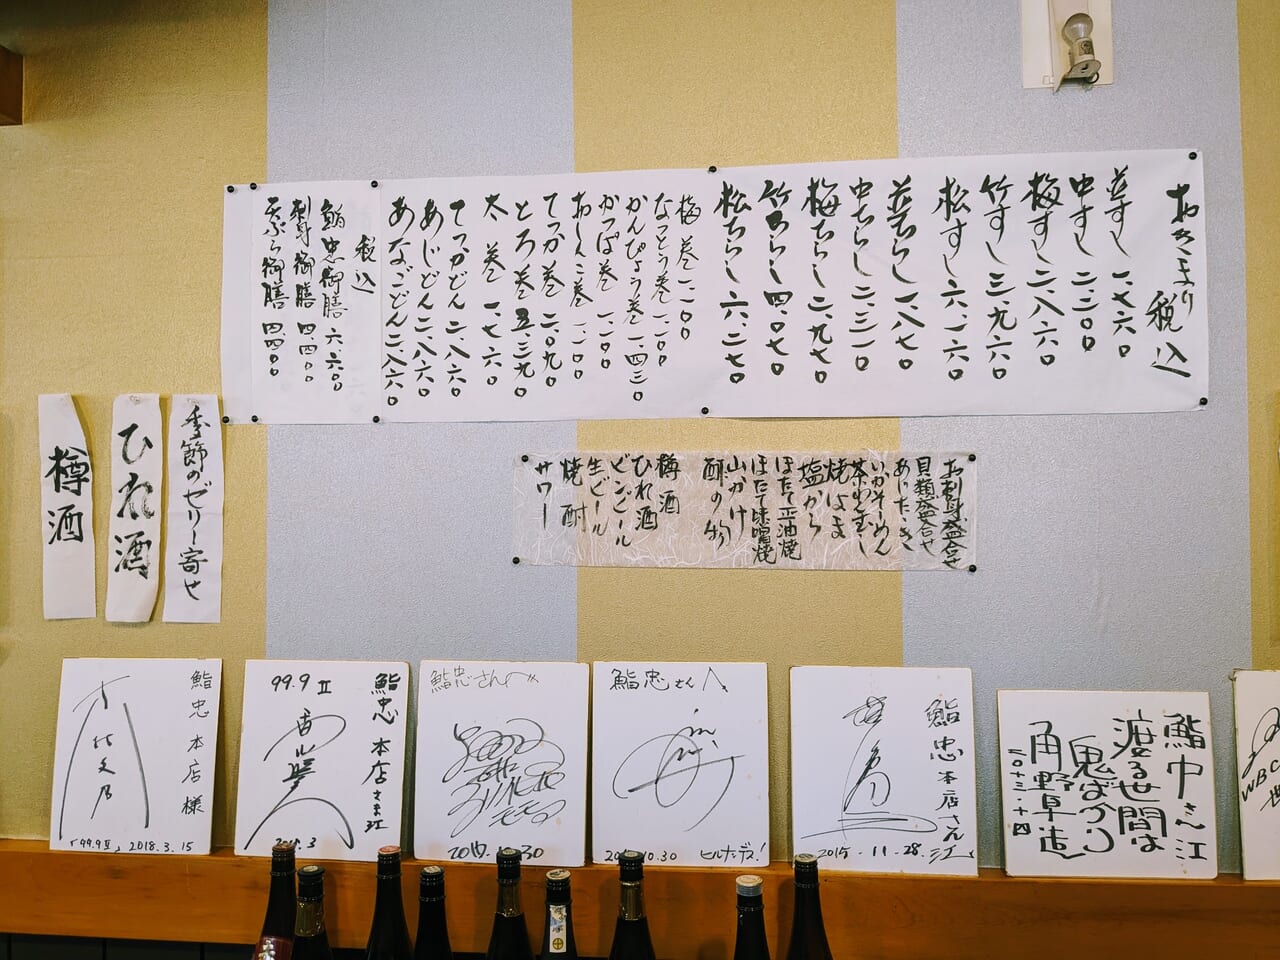 おきまり 税込
並すし 一、七六〇
中すし 二、二〇〇
梅すし 二、八六〇
竹すし 三、九六〇
松すし 六、一六〇
並ちらし 一、八七〇
中ちらし 二、三一〇
梅ちらし 二、九七〇
竹ちらし 四、〇七〇
松ちらし 六、二七〇
梅巻 一、一〇〇
なっとう巻 一、一〇〇
かんぴょう巻 一、四三〇
かっぱ巻 一、一〇〇
おしんこ巻 一、一〇〇
てっか巻 二、〇九〇
とろ巻 五、三九〇
太巻 一、七六〇
てっかどん 二、八六〇
あじどん 二、八六〇
あなごどん 二、八六〇
税込
鮨忠御膳 六、六〇〇
刺身御膳 四、四〇〇
天ぷら御膳 四、四〇〇
お刺身盛合せ
貝類盛合せ
あじたゝき
いかそーめん
茶わんむし
焼はま
塩から
ほたて正油焼
ほたて味噌焼
山かけ
酢の物
樽酒
ひれ酒
ビンビール
生ビール
焼酎
サワー
季節のゼリー寄せ
ひれ酒
樽酒
鮨忠本店様
「99.9Ⅱ」 2018.3.15
99.9Ⅱ
鮨忠本店さま江
2018.3
鮨忠さんへ
鮨忠さんへ
10.30 ヒルナンデス!
鮨忠本店さん江
2015.11.28
鮨中さん江
渡る世間は
鬼ばかり
角野卓造
二〇十三・十・四
WBC